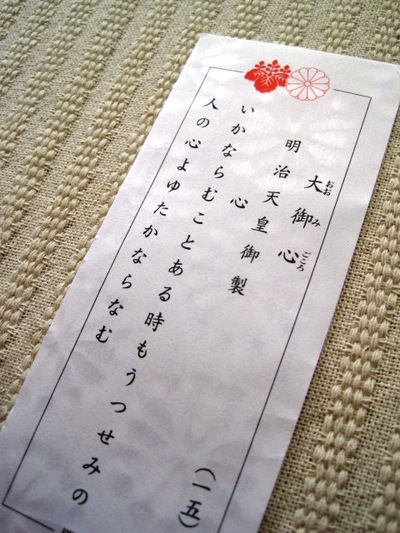 大御心
おおみごころ
明治天皇御製
心
いかならむことある時もうつせみの
人の心よゆたかならなむ
(一五)